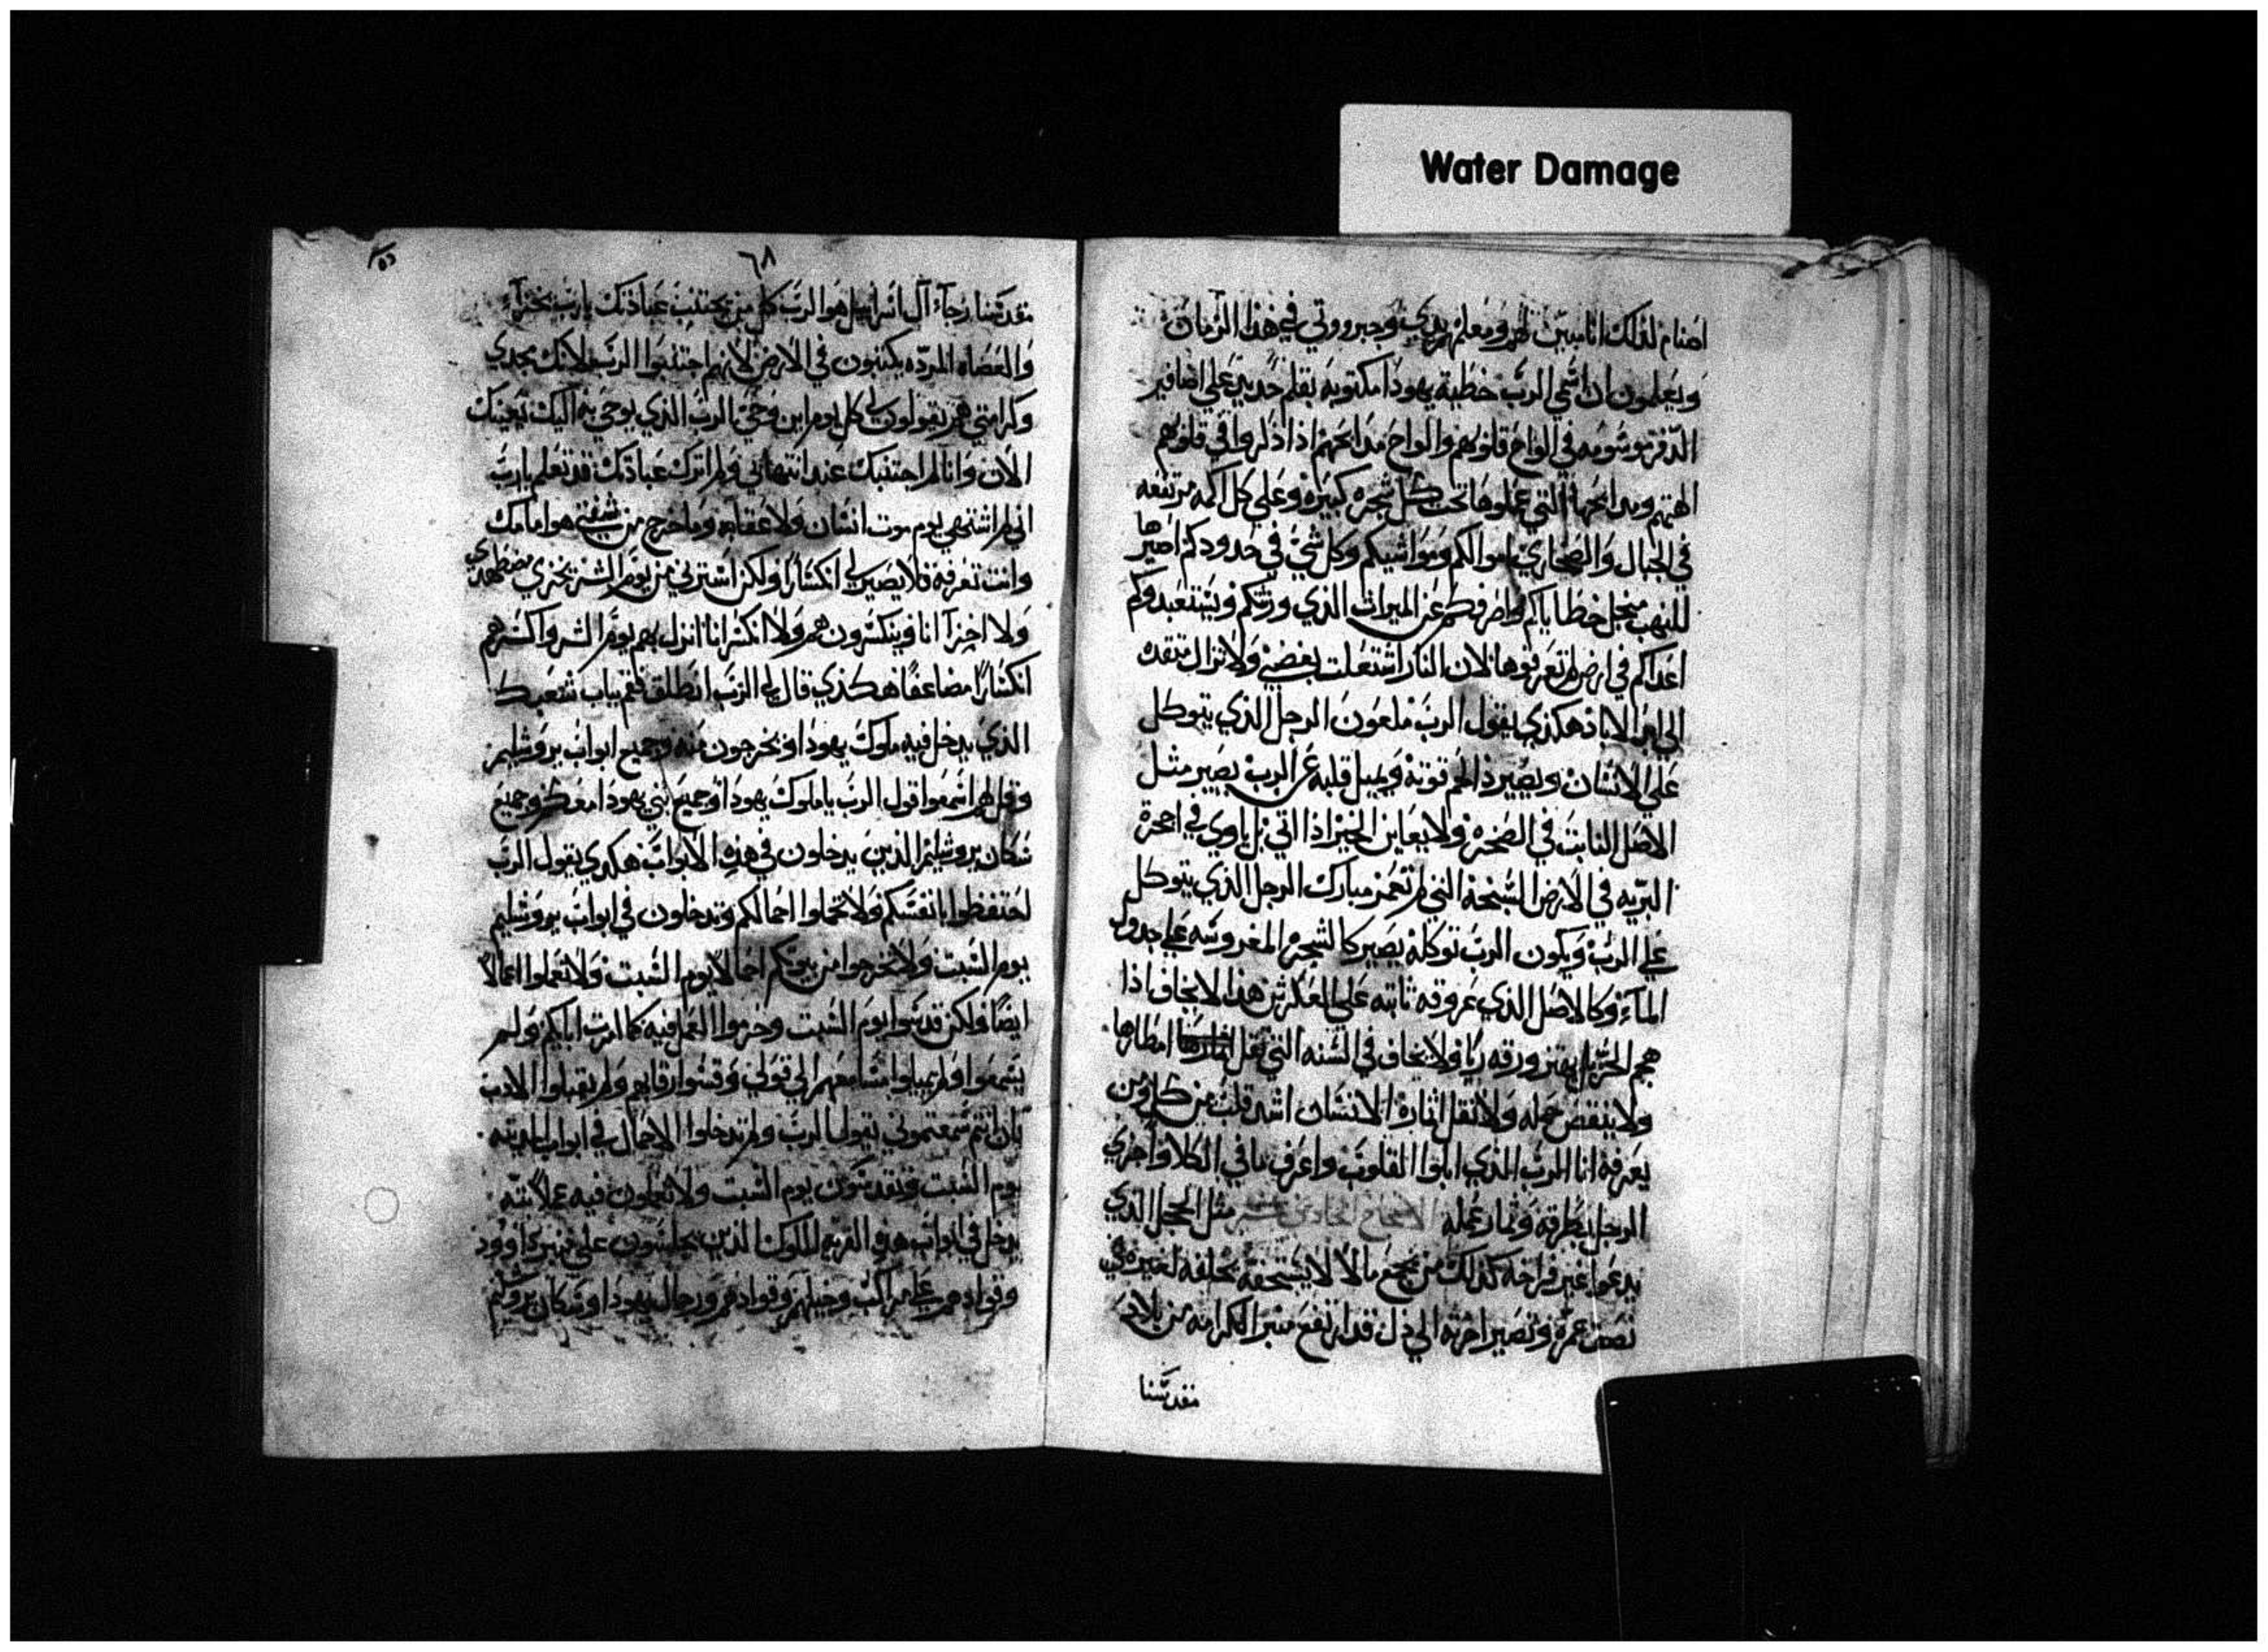 Water Damage
اصنام لذلك انا مبين لهم ومعلمهم يدي وجبرووتي في هذا الزمان
ويعلمون ان اسمي الرب خطية يهودا مكتوبه بقلم حديد علي اضافير
الدفر موسومه في الواح قلوبهم والواح مدابحهم اذا ذكروا في قلوبهم
الهتهم ومدابحها التي عملوها تحت كل شجره كبيره وعلي كل اكمه مرتفعه
في الجبال والصحاري اموالكم ومواشيكم وكل شي في حدودكم اصيرها
للنهب منجل خطاياكم واصرفكم عن الميراث الذي ورثتكم ويستعبدوكم
اعداكم في ارض لم تعرفوها لان النار اشتعلت بغضبي ولا تزال متقده
الي ابد الاباد هكذي يقول الرب ملعون الرجل الذي يتوكل
علي الانسان ويصير ذا لحم قوته ويميل قلبه عن الرب يصير مثل
الاصل النابت في الصخره ولا يعاين الخير اذا اتي بل ياوي في احجرة
البريه في الارض السبخة التي لم تعمر مبارك الرجل الذي يتوكل
علي الرب ويكون الرب توكله يصير كالشجره المغروسه علي جدول
المآء وكالاصل الذي عروقه ثابته علي العكر من هذا لا يخاف اذا
هجم الحر بل يهتز ورقه ريا ولا يخاف في السنه التي تقل امطارها
ولا ينقص حمله ولا تقل اثماره الانسان اشد قلب من كل ومن
يعرفه انا الرب الذي ابلوا القلوب واعرف ما في الكلا واجزي
الرجل بطرقه وثمار عمله الاصحاح الحادي عشر مثل الحجل الذي
يدعوا غير فراخه كذلك من يجمع مالا لا يستحقه يخلفه لغيره في
نصف عمره وتصير اخرته الي ذل قد ارتفع منبر الكرامه من بلاد
مقدسنا
٦٨
مقدسنا رجآء آل اسراييل هو الرب كل من يجتنب عبادتك يا رب يخزا
والعصاه المرده يكتبون في الارض لانهم اجتنبوا الرب لانك مجدي
وكرامتي هم يقولون لي كل يوم اين وحي الرب الذي يوحي به اليك بعينك
الان وانا لم اجتنبك عند انتهاني ولم اترك عبادتك قد تعلم يا رب
اني لم اشتهي يوم موت انسان ولا عقابه وما خرج من شفتي هو امامك
وانت تعرفه فلا يصير لي انكسارا ولكن استرني من يوم الشر يخزي مضطهدي
ولا اخزآ انا وينكسرون هم ولا انكسر انا انزل بهم يوم الشر واكسرهم
انكسارا مضاعفا هكذي قال لي الرب انطلق فقم بباب شعبك
الذي يدخل فيه ملوك يهودا ويخرجون منه وجميع ابواب يروشليم
وقل لهم اسمعوا قول الرب يا ملوك يهودا وجميع بني يهودا معكم وجميع
سكان يروشليم الذين يدخلون في هذه الابواب هكدي يقول الرب
احتفظوا بانفسكم ولا تحملوا احمالكم وتدخلون في ابواب يروشليم
يوم السبت ولا تخرجوا من بيوتكم احمالا يوم السبت ولا تعملوا اعمالا
ايضا ولكن قدسوا يوم السبت وحرموا العمل فيه كما امرت ابايكم ولم
يسمعوا ولم يميلوا مسامعهم الي قولي وقسوا رقابهم ولم يقبلوا الادب
بان انتم سمعتموني يقول الرب ولم تدخلوا الاحمال في ابواب المدينه
يوم السبت وتقدسون يوم السبت ولا تعملون فيه عملا بته
يدخل في ابواب هذه القريه الملوك الذين يجلسون علي منبر داوود
وقوادهم علي مراكب وخيلهم وقوادهم ورجال يهودا وسكان يروشليم